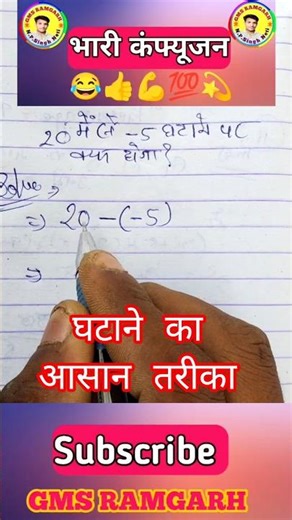 GMS RAMGARH
GMS RAMGARH
भारी कंफ्यूजन
😂👍💪💯💫
20 में से -5 घटाने पर
क्या होगा?
Solve
⇒ 20-(-5)
⇒
घटाने का
आसान तरीका
Subscribe
GMS RAMGARH